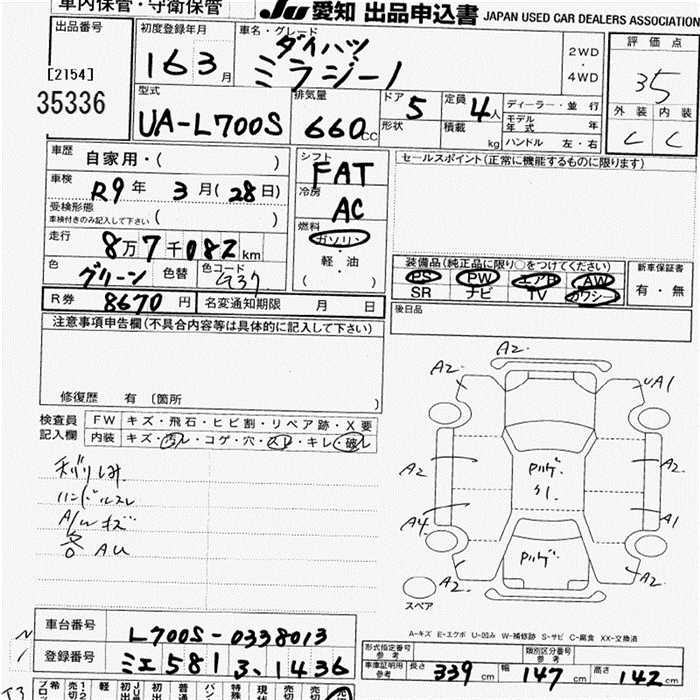 車内保管・守衛保管
JU 愛知 出品申込書 JAPAN USED CAR DEALERS ASSOCIATION
出品番号
[2154]
35336
初度登録年月
16 3月
車名・グレード
ダイハツ
ミラジーノ
2WD
・
4WD
評価点
35
外装 内装
C C
型式
UA-L700S
排気量
660cc
ドア 5
形状
定員 4人
積載 kg
ディーラー・並行
モデル年式 年
ハンドル 左・右
車歴 自家用・( )
車検 R9年 3月(28日)
受検形態
車検付きのみ記入して下さい ( )
走行 8万7千082km
色 グリーン 色替 色コード
R券 8670円 名変通知期限 月 日
シフト
FAT
冷房
AC
燃料
ガソリン
軽・油
( )
セールスポイント(正常に機能するものに限ります)
装備品(純正品に限り○をつけてください)
PS PW エアB AW
SR ナビ TV カワシート
新車保証書
有・無
後日品
注意事項申告欄(不具合内容等は具体的に記入して下さい)
修復歴 有 〔箇所 〕
検査員
記入欄
FW キズ・飛石・ヒビ割・リペア跡・X要
内装 キズ・汚レ・コゲ・穴・スレ・キレ・破レ
ハンドルスレ
A/Wキズ
各AU
A2.
A2. A1
A2 A2.
A4 A1
A2 A2.
スペア
A-キズ E-エクボ U-凹み W-補修跡 S-サビ C-腐食 XX-交換済
車台番号 L700S-0338013
登録番号 ミエ581 ミ.1436
形式指定番号
参考
類別区分番号
参考
車庫証明用
参考
長さ 339cm 幅 147cm 高さ 142cm